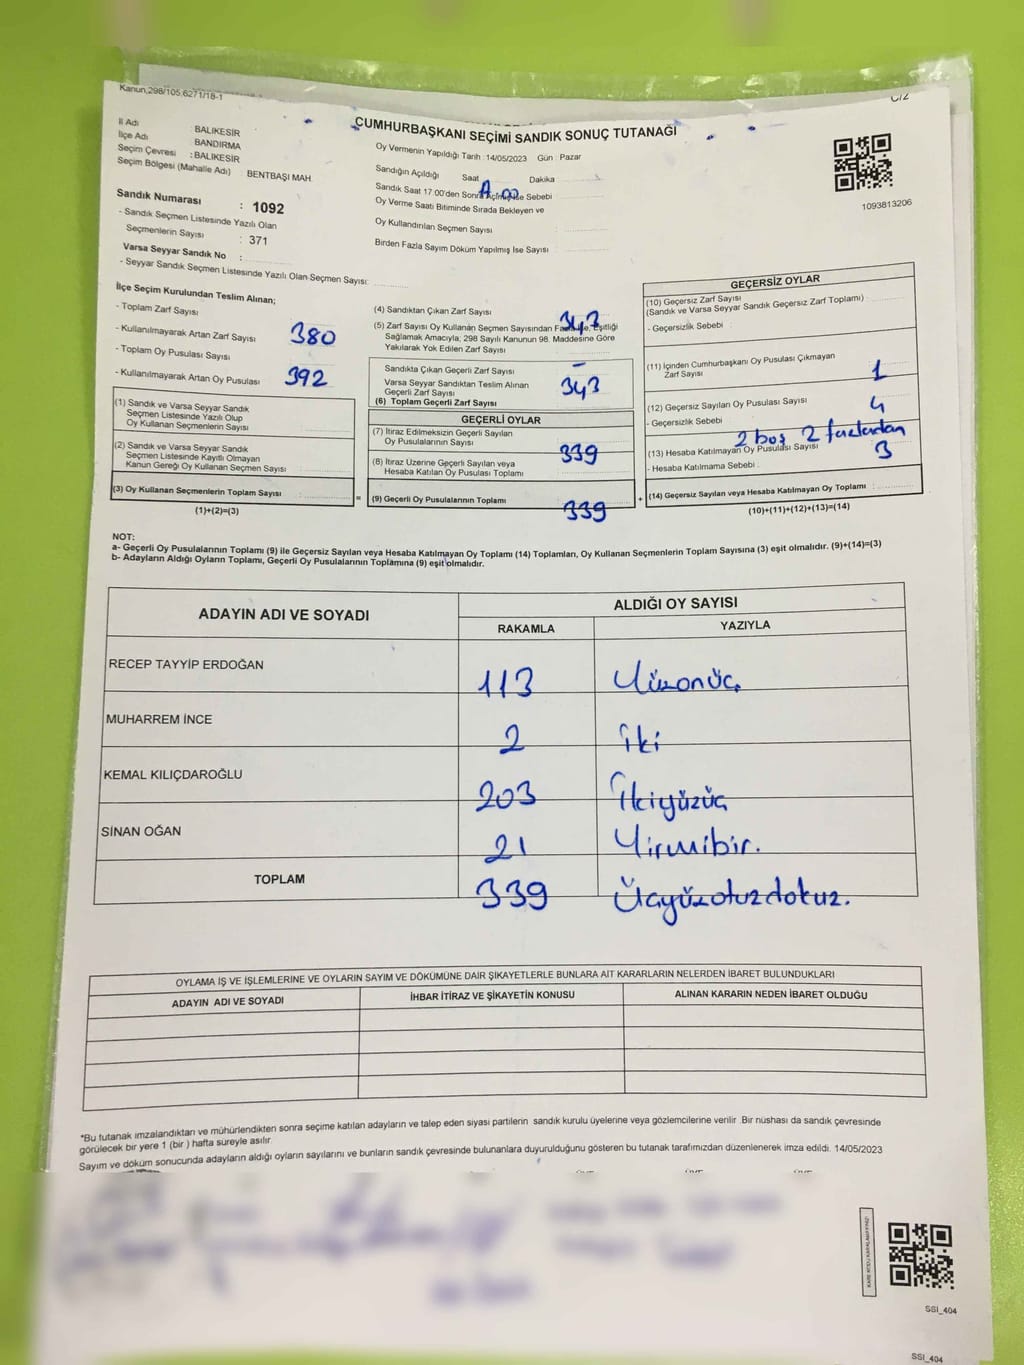 Kanun,298/105,6271/18-1
C/2
CUMHURBAŞKANI SEÇİMİ SANDIK SONUÇ TUTANAĞI
İl Adı BALIKESİR
İlçe Adı BANDIRMA
Seçim Çevresi : BALIKESİR
Seçim Bölgesi (Mahalle Adı) BENTBAŞI MAH.
Sandık Numarası : 1092
- Sandık Seçmen Listesinde Yazılı Olan
Seçmenlerin Sayısı : 371
Varsa Seyyar Sandık No :
- Seyyar Sandık Seçmen Listesinde Yazılı Olan Seçmen Sayısı:
Oy Vermenin Yapıldığı Tarih : 14/05/2023 Gün : Pazar
Sandığın Açıldığı Saat Dakika
Sandık Saat 17.00'den Sonra Açılmış İse Sebebi
Oy Verme Saati Bitiminde Sırada Bekleyen ve
Oy Kullandırılan Seçmen Sayısı :
Birden Fazla Sayım Döküm Yapılmış İse Sayısı :
1093813206
İlçe Seçim Kurulundan Teslim Alınan;
- Toplam Zarf Sayısı
- Kullanılmayarak Artan Zarf Sayısı 380
- Toplam Oy Pusulası Sayısı
- Kullanılmayarak Artan Oy Pusulası 392
(1) Sandık ve Varsa Seyyar Sandık
Seçmen Listesinde Yazılı Olup
Oy Kullanan Seçmenlerin Sayısı
(2) Sandık ve Varsa Seyyar Sandık
Seçmen Listesinde Kayıtlı Olmayan
Kanun Gereği Oy Kullanan Seçmen Sayısı
(3) Oy Kullanan Seçmenlerin Toplam Sayısı =
(1)+(2)=(3)
(4) Sandıktan Çıkan Zarf Sayısı 343
(5) Zarf Sayısı Oy Kullanan Seçmen Sayısından Fazla İse, Eşitliği
Sağlamak Amacıyla; 298 Sayılı Kanunun 98. Maddesine Göre
Yakılarak Yok Edilen Zarf Sayısı –
Sandıkta Çıkan Geçerli Zarf Sayısı
Varsa Seyyar Sandıktan Teslim Alınan
Geçerli Zarf Sayısı 343
(6) Toplam Geçerli Zarf Sayısı
GEÇERLİ OYLAR
(7) İtiraz Edilmeksizin Geçerli Sayılan
Oy Pusulalarının Sayısı 339
(8) İtiraz Üzerine Geçerli Sayılan veya
Hesaba Katılan Oy Pusulası Toplamı
(9) Geçerli Oy Pusulalarının Toplamı 339 +
GEÇERSİZ OYLAR
(10) Geçersiz Zarf Sayısı
(Sandık ve Varsa Seyyar Sandık Geçersiz Zarf Toplamı) :
- Geçersizlik Sebebi :
(11) İçinden Cumhurbaşkanı Oy Pusulası Çıkmayan
Zarf Sayısı 1
(12) Geçersiz Sayılan Oy Pusulası Sayısı 4
- Geçersizlik Sebebi : 2 boş 2 fazladan
(13) Hesaba Katılmayan Oy Pusulası Sayısı 3
- Hesaba Katılmama Sebebi :
(14) Geçersiz Sayılan veya Hesaba Katılmayan Oy Toplamı :
(10)+(11)+(12)+(13)=(14)
NOT:
a- Geçerli Oy Pusulalarının Toplamı (9) ile Geçersiz Sayılan veya Hesaba Katılmayan Oy Toplamı (14) Toplamları, Oy Kullanan Seçmenlerin Toplam Sayısına (3) eşit olmalıdır. (9)+(14)=(3)
b- Adayların Aldığı Oyların Toplamı, Geçerli Oy Pusulalarının Toplamına (9) eşit olmalıdır.
ADAYIN ADI VE SOYADI ALDIĞI OY SAYISI
RAKAMLA YAZIYLA
RECEP TAYYİP ERDOĞAN 113 Yüzonüç
MUHARREM İNCE 2 iki
KEMAL KILIÇDAROĞLU 203 İkiyüzüç
SİNAN OĞAN 21 Yirmibir.
TOPLAM 339 Üçyüzotuzdokuz.
OYLAMA İŞ VE İŞLEMLERİNE VE OYLARIN SAYIM VE DÖKÜMÜNE DAİR ŞİKAYETLERLE BUNLARA AİT KARARLARIN NELERDEN İBARET BULUNDUKLARI
ADAYIN ADI VE SOYADI İHBAR İTİRAZ VE ŞİKAYETİN KONUSU ALINAN KARARIN NEDEN İBARET OLDUĞU
*Bu tutanak imzalandıktan ve mühürlendikten sonra seçime katılan adayların ve talep eden siyasi partilerin sandık kurulu üyelerine veya gözlemcilerine verilir. Bir nüshası da sandık çevresinde
görülecek bir yere 1 (bir) hafta süreyle asılır.
Sayım ve döküm sonucunda adayların aldığı oyların sayılarını ve bunların sandık çevresinde bulunanlara duyurulduğunu gösteren bu tutanak tarafımızdan düzenlenerek imza edildi. 14/05/2023
SSI_404
SSI_404